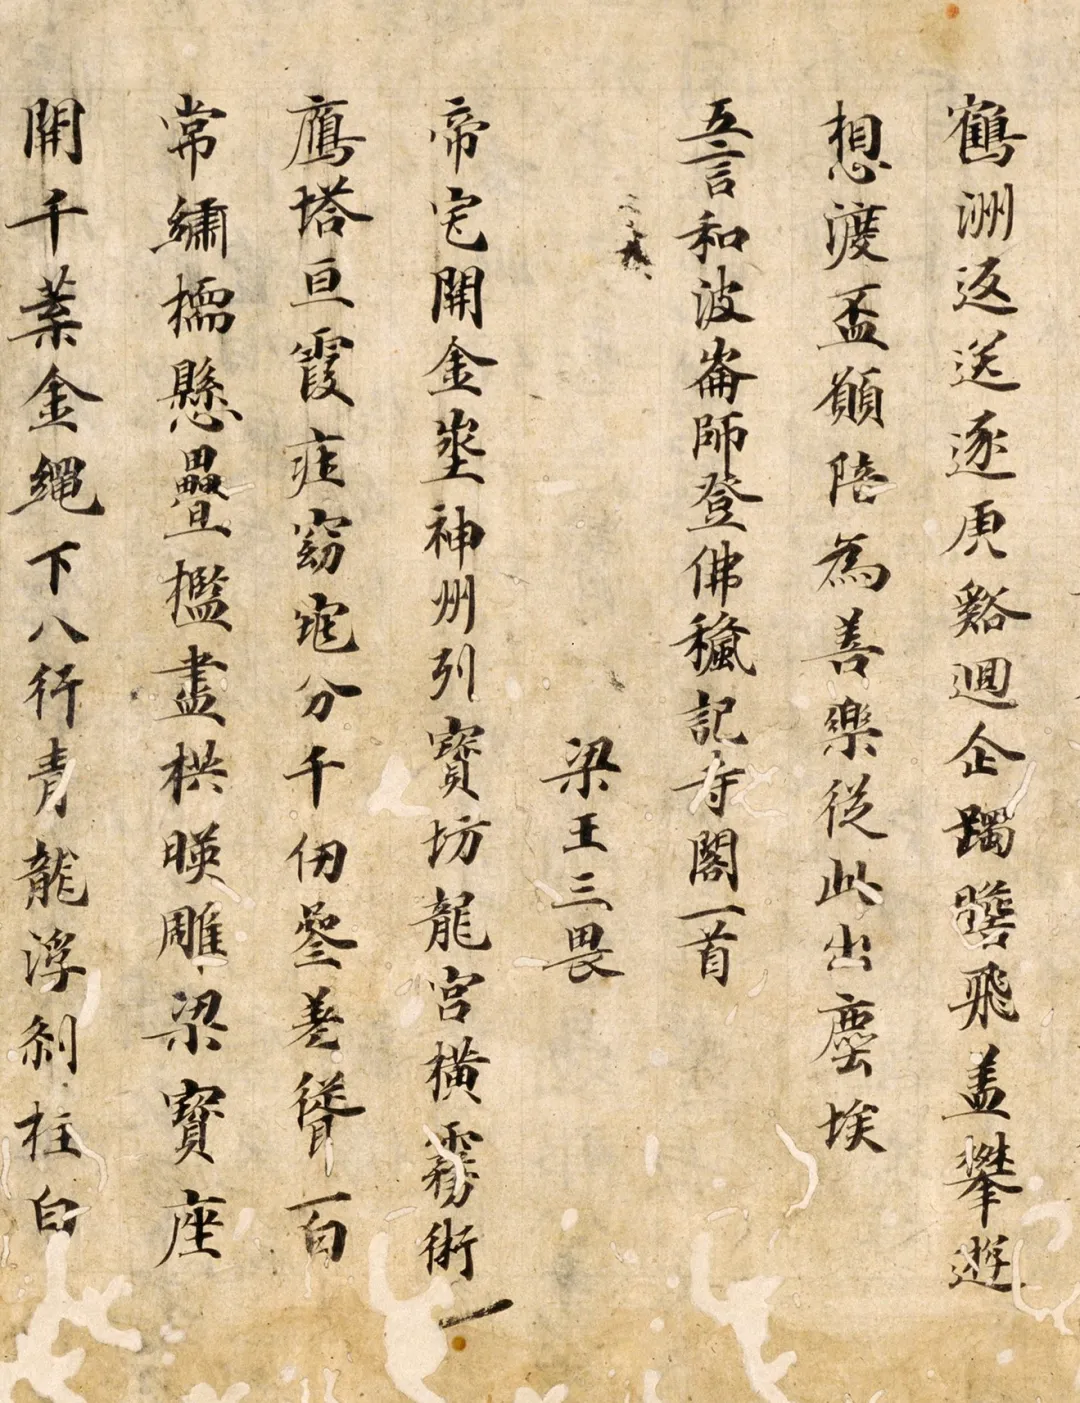 鶴洲返送逐虎谿迴企躅瞻飛盖攀遊
想渡盃願陪為善樂従此出塵埃
五言和波崙師登佛窺記寺閣一首
梁王三畏
帝宅開金埊神州列寳坊龍宮橫霧術一
鴈塔亘霞疘窈窕分千仞參差聳一百
常繡檽懸疊檻畫栱暎雕梁寳座
開千葉金繩下八行青龍浮剎柱白